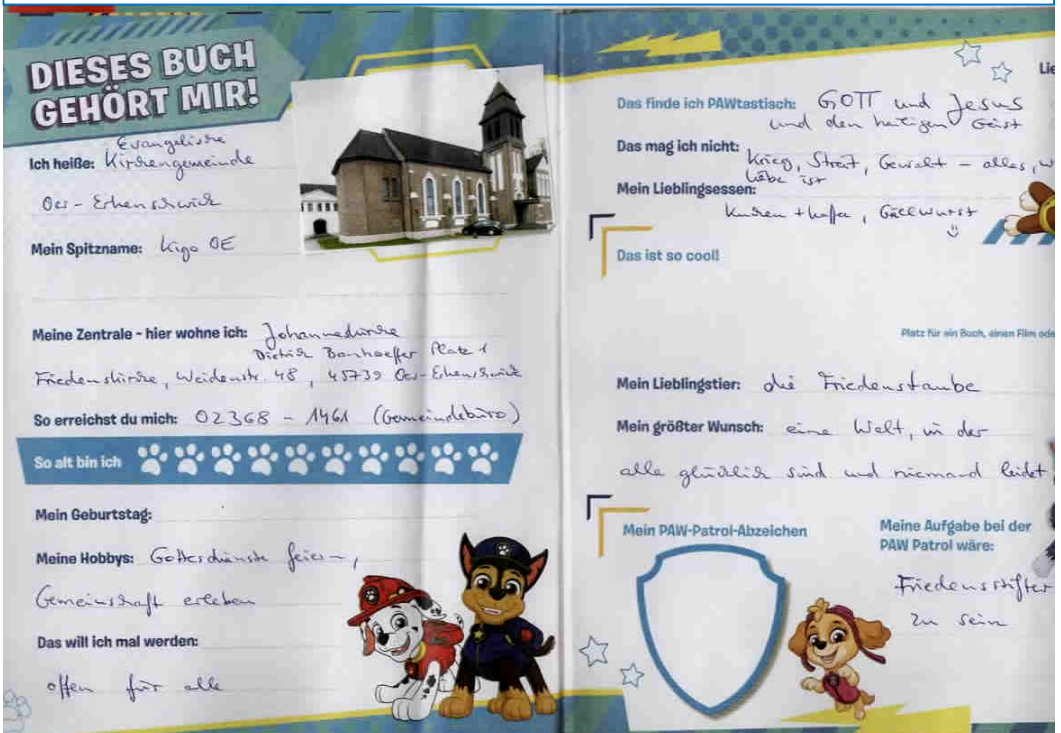 DIESES BUCH
GEHÖRT MIR!
Evangelische
Ich heiße: Kirchengemeinde
Oer-Erkenschwick
Mein Spitzname: Kigo OE
Meine Zentrale - hier wohne ich: Johanneskirche
Dietrich Bonhoeffer Platz 1
Friedenskirche, Weidenstr. 48, 45739 Oer-Erkenschwick
So erreichst du mich: 02368 - 1461 (Gemeindebüro)
So alt bin ich
Mein Geburtstag:
Meine Hobbys: Gottesdienste feiern,
Gemeinschaft erleben
Das will ich mal werden:
offen für alle
Lie
Das finde ich PAWtastisch: GOTT und Jesus
und den heiligen Geist
Das mag ich nicht: Krieg, Streit, Gewalt - alles, w
Liebe ist
Mein Lieblingsessen:
Kuchen + Kaffee, Grillwurst
Das ist so cool!
Platz für ein Buch, einen Film ode
Mein Lieblingstier: die Friedenstaube
Mein größter Wunsch: eine Welt, in der
alle glücklich sind und niemand leidet
Mein PAW-Patrol-Abzeichen
Meine Aufgabe bei der
PAW Patrol wäre:
Friedensstifter
zu sein